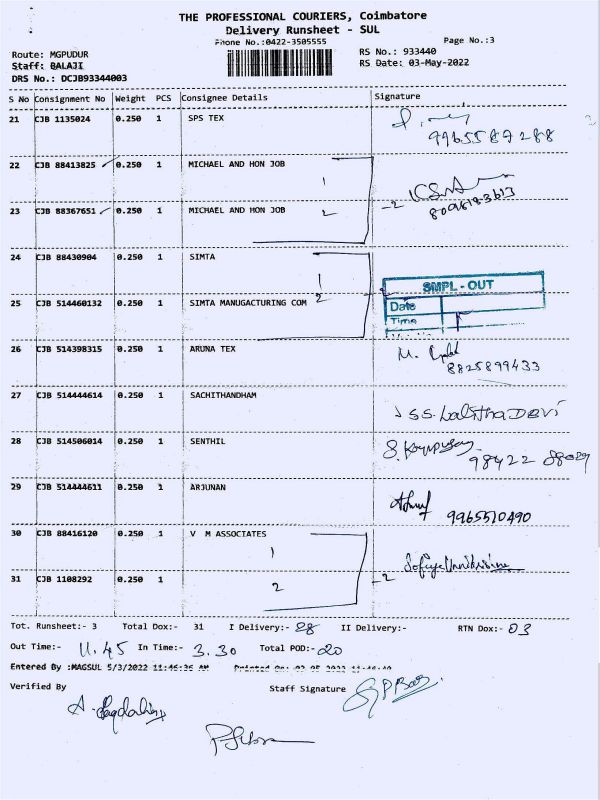 THE PROFESSIONAL COURIERS, Coimbatore
Delivery Runsheet - SUL
Phone No.:0422-3505555
Page No.:3
Route: MGPUDUR
RS No.: 933440
Staff: BALAJI
RS Date: 03-May-2022
DRS No.: DCJB93344003
S No Consignment No Weight PCS Consignee Details Signature
21 CJB 1135024 0.250 1 SPS TEX
9965587288
22 CJB 88413825 0.250 1 MICHAEL AND HON JOB
1
23 CJB 88367651 0.250 1 MICHAEL AND HON JOB
2 -2
24 CJB 88430904 0.250 1 SIMTA
1
SMPL - OUT
25 CJB 514460132 0.250 1 SIMTA MANUGACTURING COM 2
Date
Time
26 CJB 514398315 0.250 1 ARUNA TEX
8825899433
27 CJB 514444614 0.250 1 SACHITHANDHAM
S.S. Lalitha DEVI
28 CJB 514506014 0.250 1 SENTHIL
98422 88029
29 CJB 514444611 0.250 1 ARJUNAN
9965510490
30 CJB 88416120 0.250 1 V M ASSOCIATES
1
31 CJB 1108292 0.250 1
2 -2
Tot. Runsheet:- 3 Total Dox:- 31 I Delivery:- 28 II Delivery:- RTN Dox:- 03
Out Time:- 11.45 In Time:- 3.30 Total POD:- 20
Entered By :MAGSUL 5/3/2022 11:46:36 AM Printed On: 03-05-2022 11:46:40
Verified By
Staff Signature